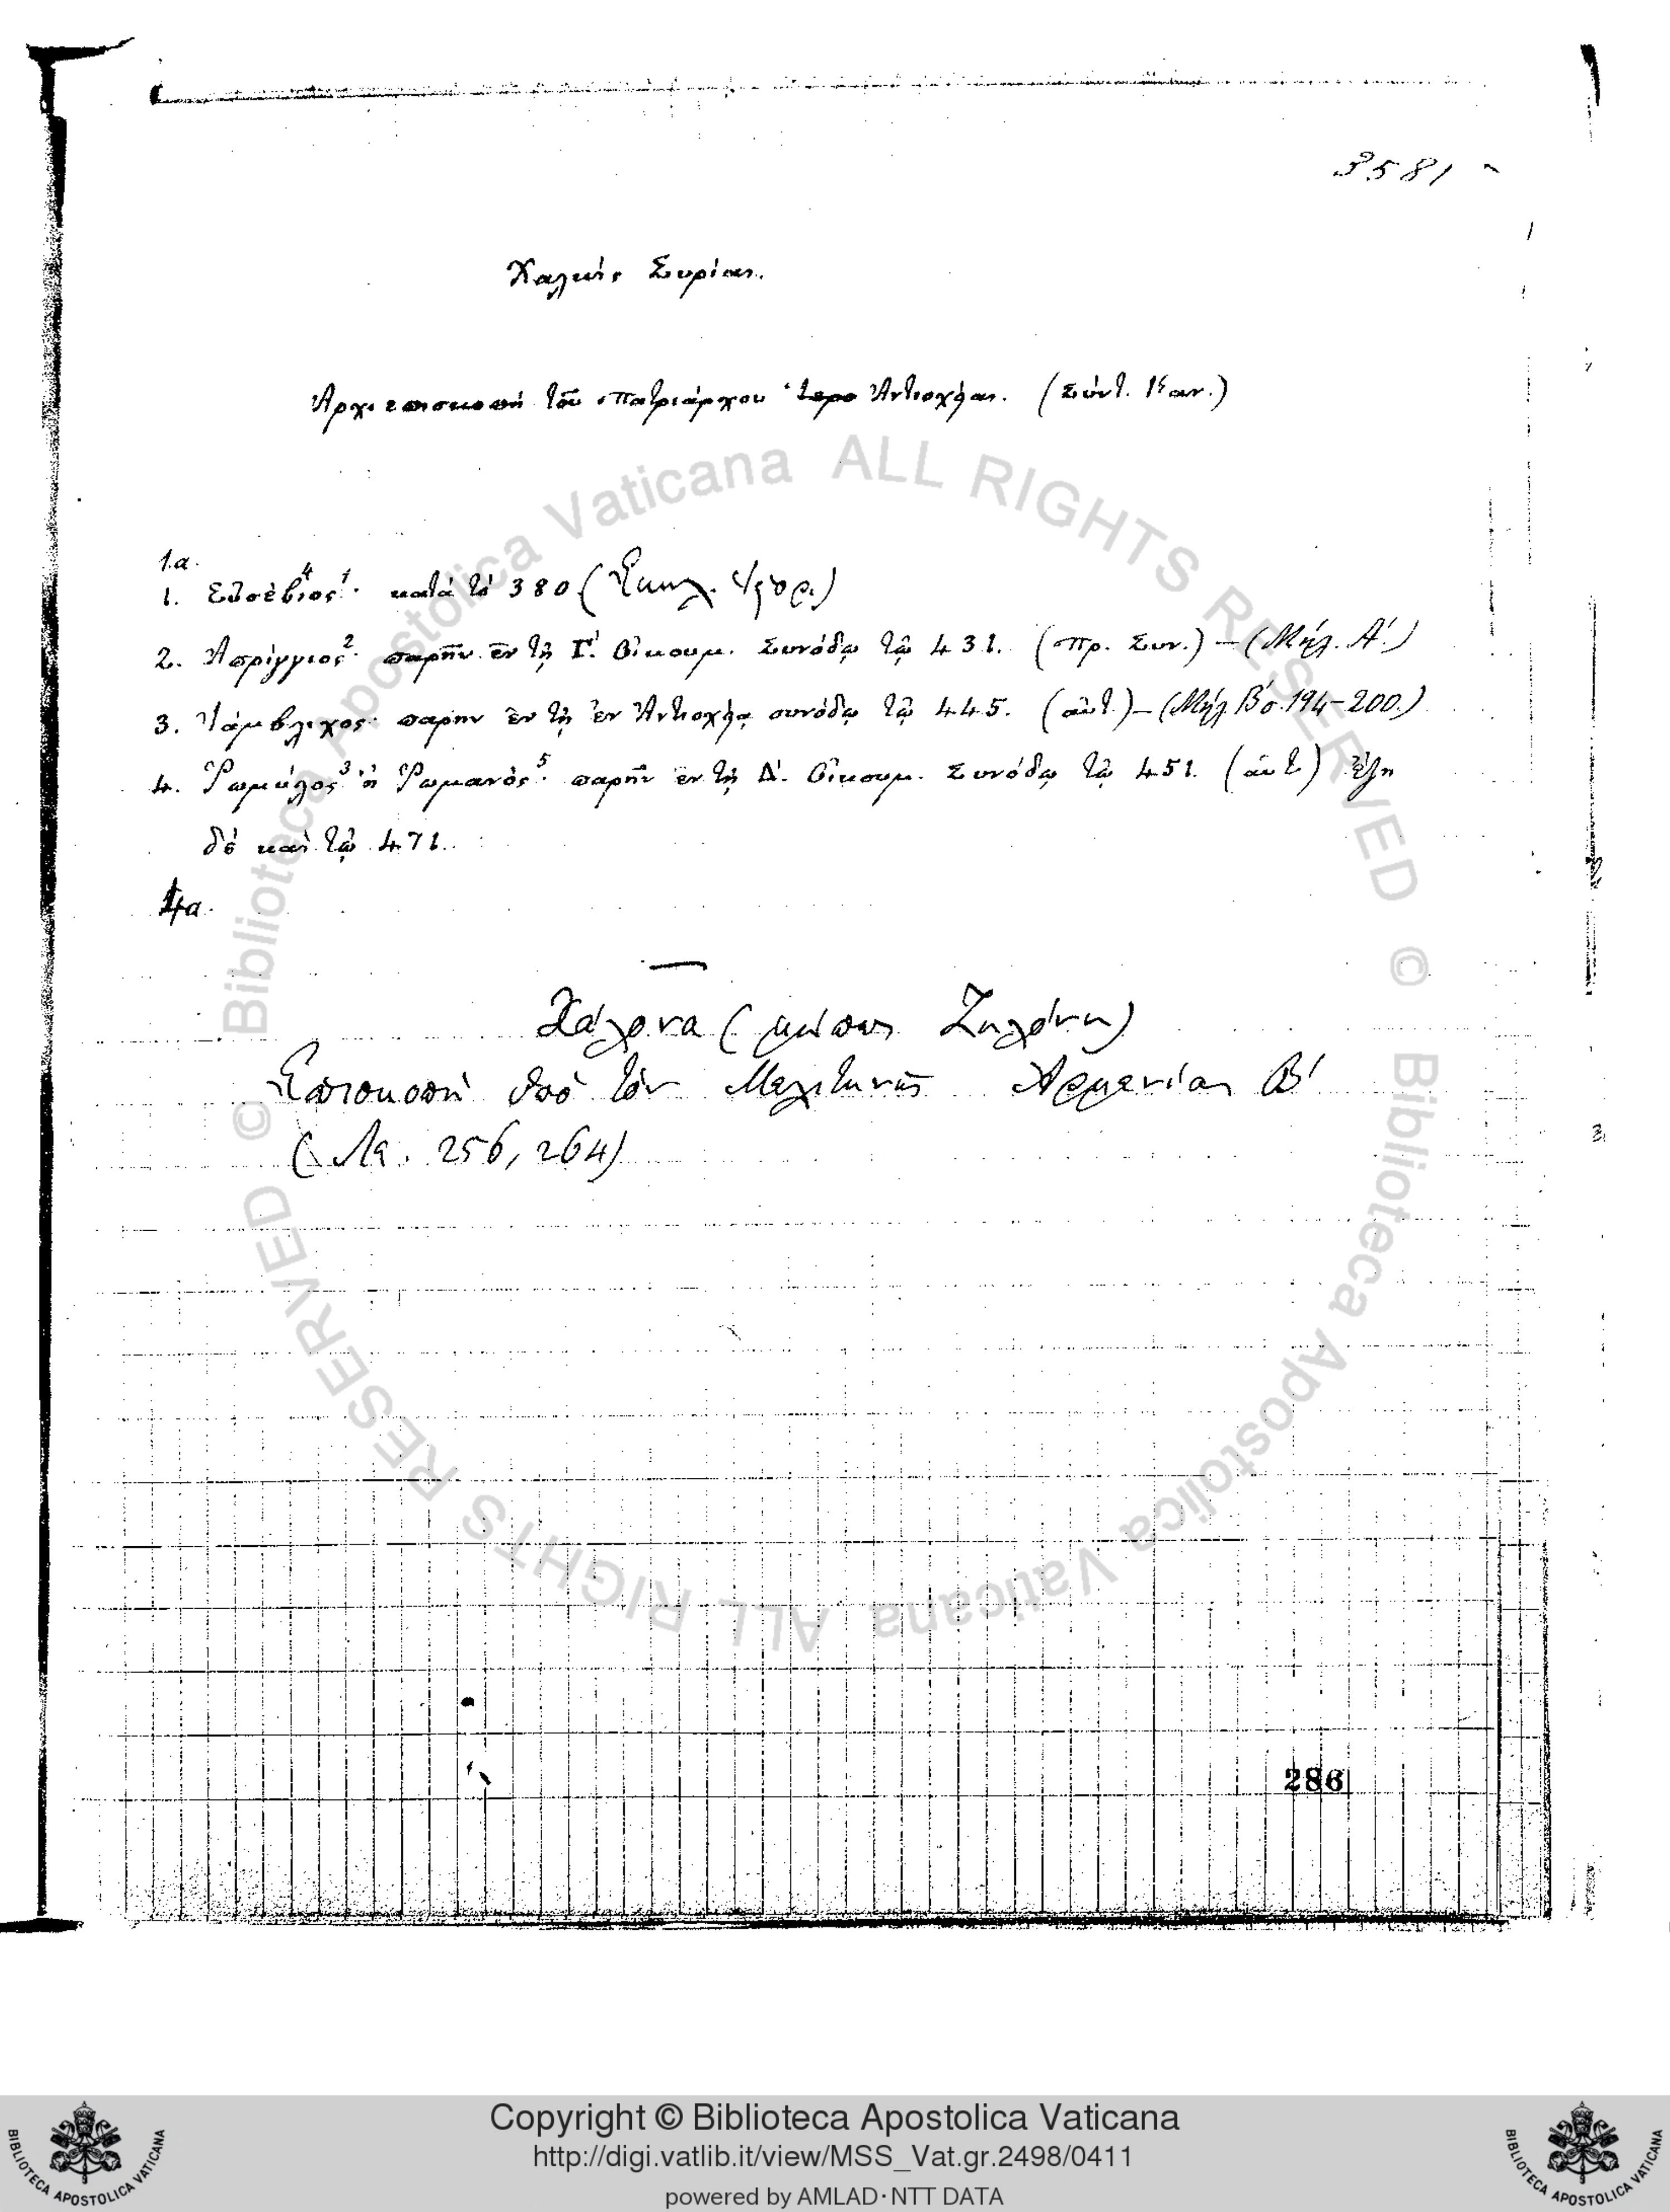 3581
Χαλκὶς Συρίας.
Ἀρχιεπισκοπὴ τοῦ Πατριάρχου Ἀντιοχείας. (Σύντ. Καν.)
1.α.
1. Εὐσέβιος 4 1. κατὰ τὸ 380 (Ἐκκλ.
2. Ἀπρίγγιος 2. παρῆν ἐν τῇ Γ΄. Οἰκουμ. Συνόδῳ τῷ 431. (Πρ. Συν.) – (Μήλ. Α΄.)
3. Ἰάμβλιχος· παρῆν ἐν τῇ ἐν Ἀντιοχείᾳ συνόδῳ τῷ 445. (αὐτ.) – (Μήλ. Β΄ σ. 194–200.)
4. Ῥωμύλος 3 ἢ Ῥωμανὸς 5. παρῆν ἐν τῇ Δ΄. Οἰκουμ. Συνόδῳ τῷ 451. (αὐτ.) ἔζη
δὲ καὶ τῷ 471.
4α.
(μήπως
Ἐπισκοπὴ ὑπὸ τὸν Μελιτηνῆς Ἀρμενίας Β΄
256, 264)
286
© Biblioteca Apostolica Vaticana ALL RIGHTS RESERVED
© Biblioteca Apostolica Vaticana ALL RIGHTS RESERVED
Copyright © Biblioteca Apostolica Vaticana
http://digi.vatlib.it/view/MSS_Vat.gr.2498/0411
powered by AMLAD·NTT DATA
BIBLIOTECA APOSTOLICA VATICANA
BIBLIOTECA APOSTOLICA VATICANA